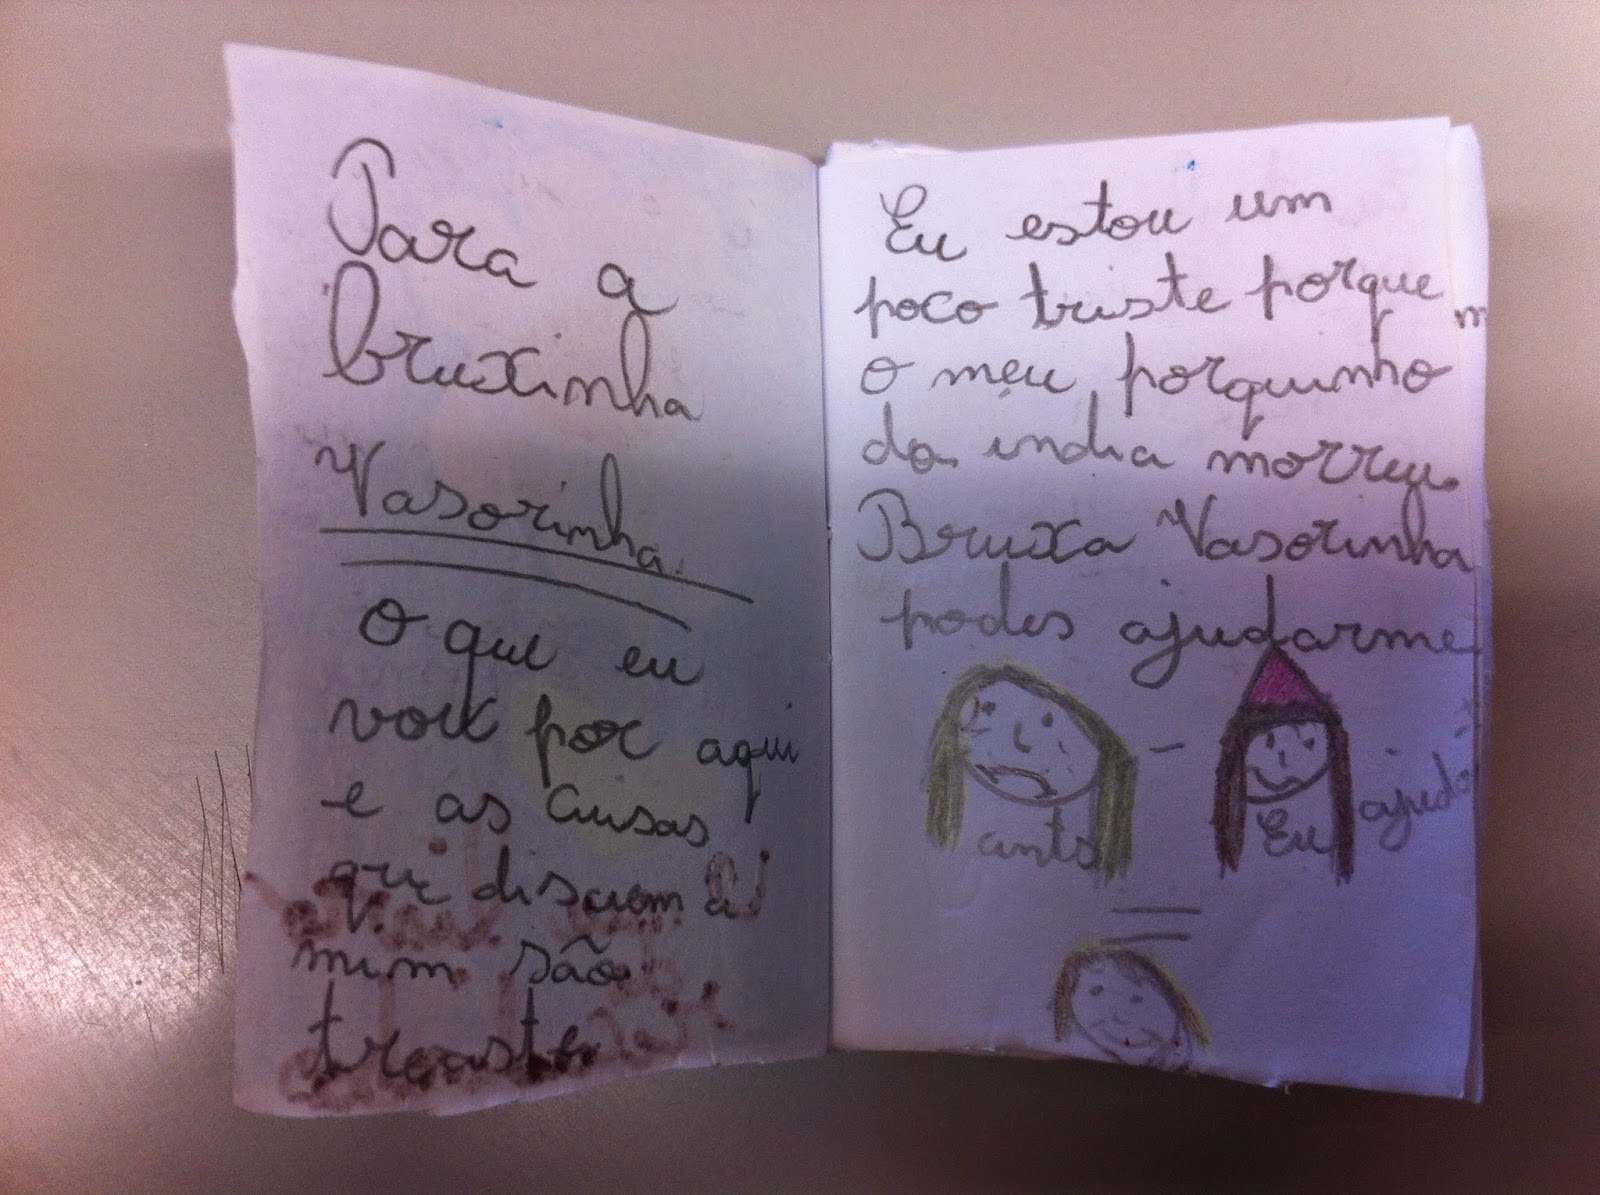 Para a
bruxinha
Vasorinha.
O que eu
vou por aqui
e as cuisas
que discuem a
mim são
treaste
Eu estou um
poco triste porque
o meu porquinho
da india morreu.
Bruxa Vasorinha
podes ajudarme
ants
Eu
ajudo